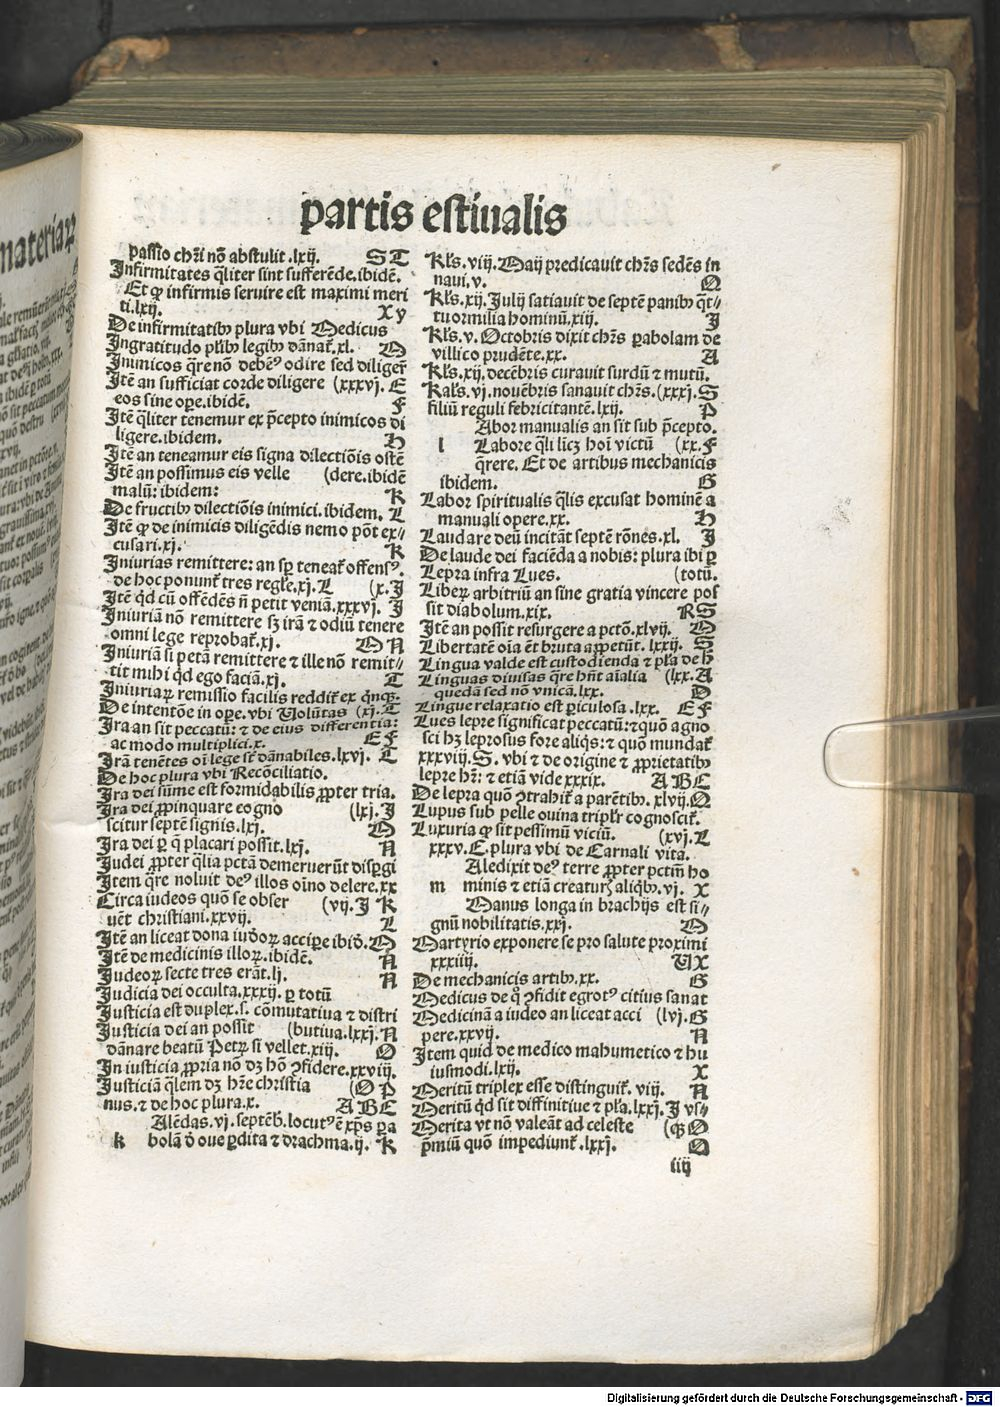 partis estiualis
passio chr̄i nō abstulit .lxij. S T
Infirmitates q̄liter sint sufferēde. ibidē.
Et qͥ infirmis seruire est maximi meri
ti. lxij. X y
De infirmitatibꝰ plura vbi Medicus
Ingratitudo pl̄ibꝰ legibꝰ dānat̄. xl. O
Inimicos q̄re nō debēꝰ odire sed diliger̄
Itē an sufficiat corde diligere (xxxvj. E
eos sine oꝑe. ibidē. F
Itē q̄liter tenemur ex p̄cepto inimicos di
ligere. ibidem. H
Itē an teneamur eis signa dilectiōis ostē
Itē an possimus eis velle (dere. ibidē
malū: ibidem: K
De fructibꝰ dilectiōis inimici. ibidem. L
Itē qͥ de inimicis diligēdis nemo pōt ex⸗
cusari. xj. K
Iniurias remittere: an sp̄ teneat̄ offensꝰ.
de hoc ponunt̄ tres regl̄e. xj. L (x. J
Itē qd cū offēdēs n̄ petit veniā. xxxvj. J
Iniuriā nō remittere sꝫ irā ⁊ odiū tenere
omni lege reprobat̄. xj. O N
Iniuriā si petā remittere ⁊ ille nō remit⸗
tit mihi qd ego faciā. xj. T
Iniuriaꝝ remissio facilis reddit̄ ex qͥnqꝫ.
De intentōe in oꝑe. vbi Volūtas (xj. T
Ira an sit peccatū: ⁊ de eius differentia:
ac modo multiplici. x. E F
Irā tenētes oī lege st̄ dānabiles. lxvj. T
De hoc plura vbi Recōciliatio.
Ira dei sūme est formidabilis ꝓpter tria.
Ira dei ꝓpinquare cogno (lxj. J
scitur septē signis. lxj. O
Ira dei ꝑ q̄ placari possit. lxj. N
Iudei ꝓpter q̄lia pctā demeruerūt disꝑgi
Item q̄re noluit deꝰ illos oīno delere. xx
Circa iudeos quō se obser (vij. J K
uēt christiani. xxvij. L
Itē an liceat dona iudeoꝝ acciꝑe ibid. O
Itē de medicinis illoꝝ. ibidē. N
Iudeoꝝ secte tres erāt. lj. N
Iudicia dei occulta. xxxij. ꝑ totū
Iusticia est duplex. s. cōmutatiua ⁊ distri
Iusticia dei an possit (butiua. lxxj. N
dānare beatū Petꝝ si vellet. xiij. O
In iusticia ꝓpria nō dꝫ hō ꝯfidere. xxviij.
Iusticiā q̄lem dꝫ hr̄e christia (O P
nus. ⁊ de hoc plura. x. A B E
k Alēdas. vj. septēb. locutꝰ ē xp̄s ꝑa
bolā d̄ oue ꝑdita ⁊ drachma. ij. K
Kl̄s. viij. Maij predicauit chr̄s sedēs in
naui. v. O
Kl̄s. xij. Julij satiauit de septē panibꝰ q̄t⸗
tuor milia hominū. xiij. J
Kl̄s. v. Octobris dixit chr̄s ꝑabolam de
villico prudēte. xx. A
Kl̄s. xij. decēbris curauit surdū ⁊ mutū.
Kal̄s. vj. nouēbris sanauit chr̄s. (xxxj. S
filiū reguli febricitantē. lxij. P
l Abor manualis an sit sub p̄cepto.
Labore q̄li licꝫ hoī victū (xx. F
q̄rere. Et de artibus mechanicis
ibidem. G
Labor spiritualis q̄lis excusat hominē a
manuali opere. xx. H
Laudare deū incitāt septē rōnes. xl. J
De laude dei faciēda a nobis: plura ibi ꝑ
Lepra infra Lues. (totū.
Liberꝫ arbitriū an sine gratia vincere pos
sit diabolum. xix. R S
Itē an possit resurgere a pctō. xlvij. O
Libertatē oīa ēt bruta appetūt. lxxij. S
Lingua valde est custodienda ⁊ pl̄a de h̄
Linguas diuisas q̄re hn̄t aīalia (lxx. A
quedā sed nō vnicā. lxx. D
Lingue relaxatio est ꝑiculosa. lxx. E F
Lues lepre significat peccatū: ⁊ quō a gno
sci hꝫ leprosus fore aliqͥs: ⁊ quō mundat̄
xxxviij. S. vbi ⁊ de origine ⁊ ꝓprietatibꝰ
lepre hr̄: ⁊ etiā vide xxxix. A B E
De lepra quō ꝯtrahit̄ a parētibꝰ. xlvij. O
Lupus sub pelle ouina tripl̄r cognoscit̄.
Luxuria qͥ sit pessimū viciū. (xvj. L
xxxv. E. plura vbi de Carnali vita.
m Aledixit deꝰ terre ꝓpter pctm̄ ho
minis ⁊ etiā creaturꝭ aliqͥbꝰ. vj. X
Manus longa in brachijs est si⸗
gnū nobilitatis. xxj. O
Martyrio exponere se pro salute proximi
xxxiiij. V X
De mechanicis artibꝰ. xx. G
Medicus de qͦ ꝯfidit egrotꝰ citius sanat
Medicinā a iudeo an liceat acci (lvj. G
pere. xxvij. N
Item quid de medico mahumetico ⁊ hu
iusmodi. lxij. X
Meritū triplex esse distinguit̄. viij. N
Meritū qd sit diffinitiue ⁊ pl̄a. lxxj. J vs⸗
Merita vt nō valeāt ad celeste (qꝫ O
p̄miū quō impediunt̄. lxxj. O
liij
Digitalisierung gefördert durch die Deutsche Forschungsgemeinschaft - DFG